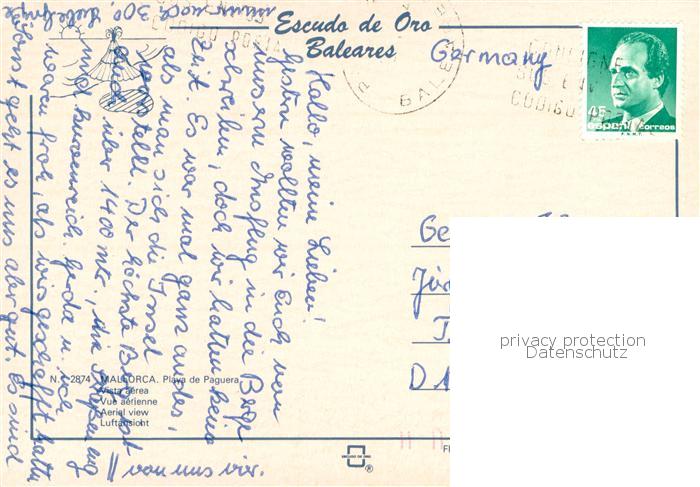 Escudo de Oro
Baleares
Germany
CODIGO POSTAL
BALEAR
PONGA
SU EN
CODIGO
45
españa correos
F.N.M.T.
Hallo, meine Lieben!
Gestern wollten wir Euch von
unserem Ausflug in die Berge
schreiben, doch wir hatten keine
Zeit. Es war mal ganz anders,
als man sich die Insel
vorstellt. Der höchste Berg ist
auch über 1400 mtr., die
und kurvenreich. Gerda u. ich
waren froh, als wir's geschafft hatten
Sonst geht es uns aber gut. Es sind
immer noch 30°
von uns vier.
N.º 2874 MALLORCA. Playa de Paguera
Vista aérea
Vue aérienne
Aerial view
Luftansicht
Ge
Jür
D 1
ESCUDO DE ORO
®
FI
privacy protection
Datenschutz